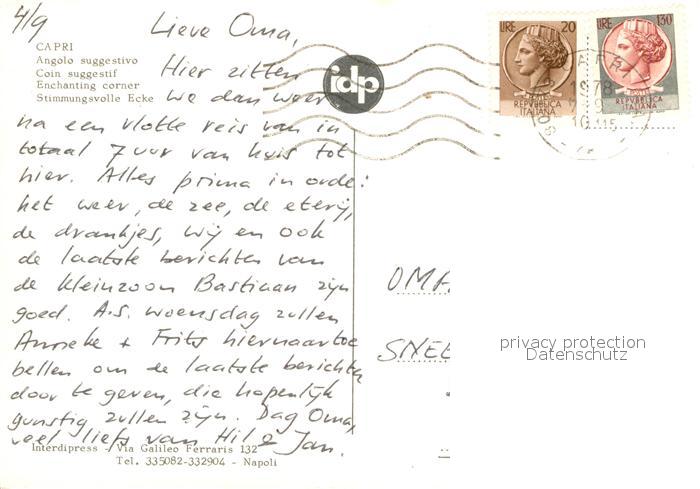 4/9
Lieve Oma,
CAPRI
Angolo suggestivo
Coin suggestif
Enchanting corner
Stimmungsvolle Ecke
idp
Hier zitten
we dan weer
na een vlotte reis van in
totaal 7 uur van huis tot
hier. Alles prima in orde:
het weer, de zee, de eterij,
de drankjes, wij en ook
de laatste berichten van
de kleinzoon Bastiaan zijn
goed. A.s. woensdag zullen
Anneke + Frits hiernaartoe
bellen om de laatste berichten
door te geven, die hopenlijk
gunstig zullen zijn. Dag Oma,
veel liefs van Hil & Jan.
Interdipress - Via Galileo Ferraris 132
Tel. 335082-332904 - Napoli
LIRE 20
POSTE
REPVBBLICA
ITALIANA
LIRE 130
POSTE
REPVBBLICA
ITALIANA
OMA
SNEL
privacy protection
Datenschutz